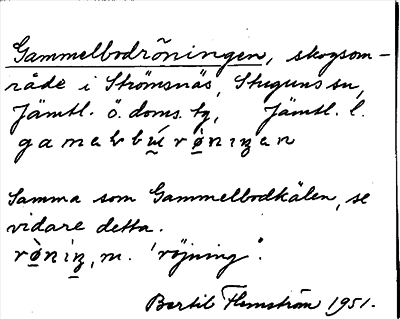 Gammelbodröningen, skogsom-
råde i Strömsnäs, Stuguns sn,
Jämtl. ö. doms. tg, Jämtl. l.
gamaḷbu̲rø̲niŋan
Samma som Gammelbodkälen, se
vidare detta.
rø̲̀niŋ, m. 'röjning'.
Bertil Flemström 1951.